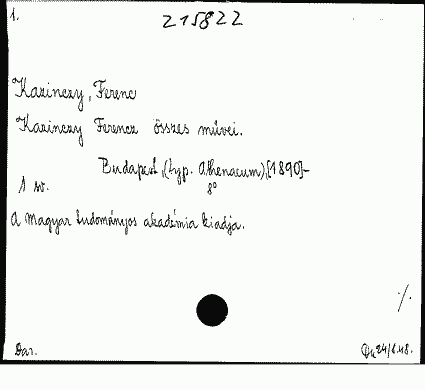 1.
215822
Kazinczy, Ferenc
Kazinczy Ferencz összes művei.
Budapest, (typ. Athenaeum), [1890]-
1 sv. 8°
A Magyar tudományos akadémia kiadja.
./.
Dar. 24/6.48.